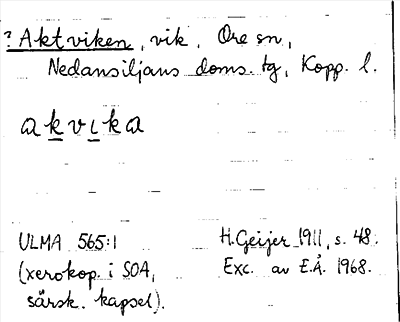 ? Aktviken, vik, Ore sn,
Nedansiljans doms. tg, Kopp. l.
akvika
ULMA 565:1
(xerokop. i SOA,
särsk. kapsel).
H. Geijer 1911, s. 48.
Exc. av E.Å. 1968.